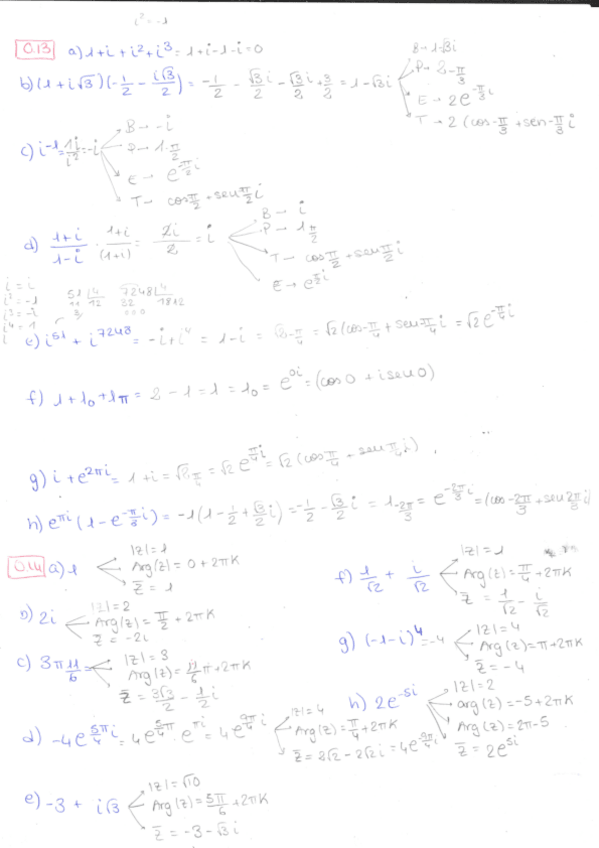 i² = -1
0.13 a) 1 + i + i² + i³ = 1 + i - 1 - i = 0
B → 1 - √3i
P → 2 -π/3
b) (1 + i√3)(-1/2 - i√3/2) = -1/2 - √3/2 i - √3/2 i + 3/2 = 1 - √3i
E → 2e^(-π/3 i)
T → 2 (cos -π/3 + sen -π/3 i
B → -i
c) i⁻¹ = 1i/i² = -i P → 1 -π/2
E → e^(-π/2 i)
T → cos π/2 - sen π/2 i
B → i
P → 1 π/2
d) (1+i)/(1-i) · (1+i)/(1+i) = 2i/2 = i
T → cos π/2 + sen π/2 i
E → e^(π/2 i)
i = i
i² = -1 51 | 4 7248 | 4
i³ = -i 11 12 32 1812
i⁴ = 1 3 000
e) i⁵¹ + i⁷²⁴⁸ = -i + i⁴ = 1 - i = √2 -π/4 = √2 (cos -π/4 + sen -π/4 i = √2 e^(-π/4 i)
f) 1 + 1₀ + 1π = 2 - 1 = 1 = 1₀ = e^(0i) = (cos 0 + i sen 0)
g) i + e^(2πi) = 1 + i = √2 π/4 = √2 e^(π/4 i) = √2 (cos π/4 + sen π/4 i)
h) e^(πi) (1 - e^(-π/3 i)) = -1(1 - 1/2 + √3/2 i) = -1/2 - √3/2 i = 1 -2π/3 = e^(-2π/3 i) = (cos -2π/3 + sen 2π/3 i)
|z| = 1
0.14 a) 1 Arg(z) = 0 + 2πK
z̄ = 1
|z| = 2
b) 2i Arg(z) = π/2 + 2πK
z̄ = -2i
|z| = 3
c) 3 π11/6 = Arg(z) = 11/6 π + 2πK
z̄ = 3√3/2 - 1/2 i
|z| = 4
d) -4e^(5π/4 i) = 4e^(5π/4) · e^(πi) = 4e^(9π/4 i) Arg(z) = π/4 + 2πK
z̄ = 2√2 - 2√2 i = 4e^(-9π/4 i)
|z| = √10
e) -3 + i√3 Arg(z) = 5π/6 + 2πK
z̄ = -3 - √3 i
|z| = 1
f) 1/√2 + i/√2 Arg(z) = π/4 + 2πK
z̄ = 1/√2 - i/√2
|z| = 4
g) (-1 - i)⁴ = -4 Arg(z) = π + 2πK
z̄ = -4
|z| = 2
h) 2e^(-5i) arg(z) = -5 + 2πK
Arg(z) = 2π - 5
z̄ = 2e^(5i)